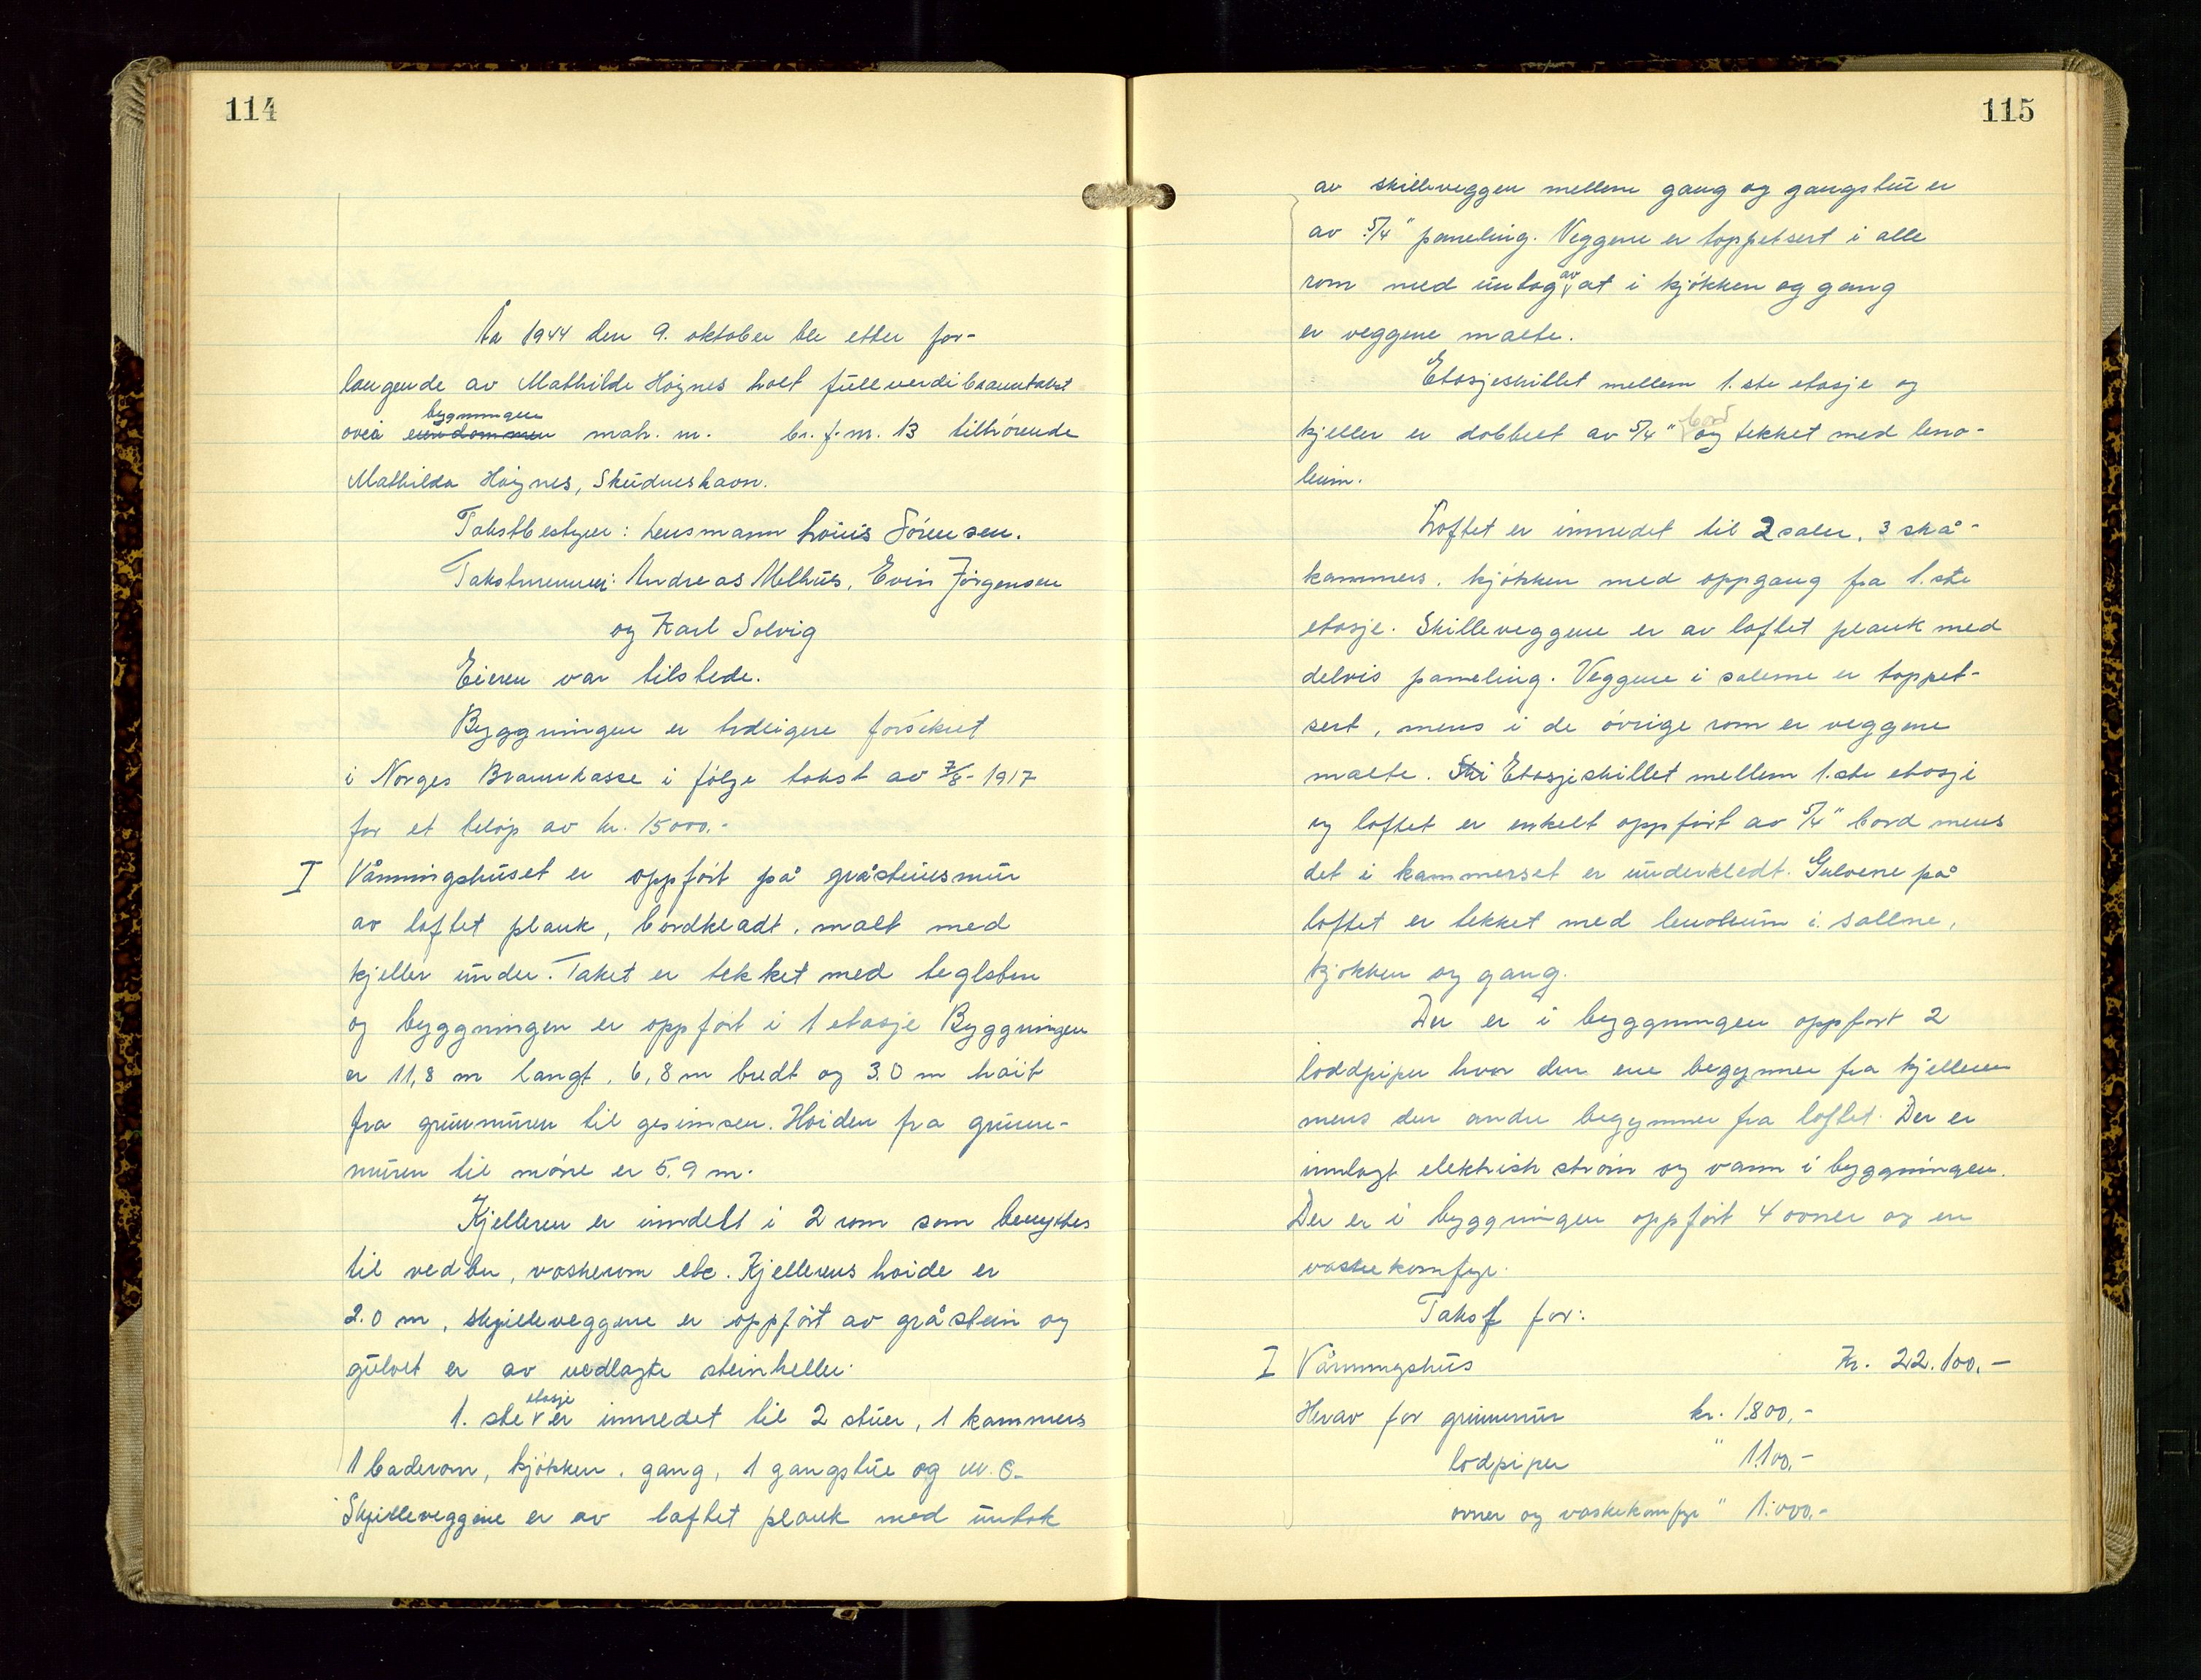 114
År 1944 den 9. oktober ble etter for-
langende av Mathilde Høynes holt fullverdibranntakst
over eiendommen bygningen matr. nr. br. f. nr. 13 tilhørende
Mathilda Høynes, Skudneshavn.
Takstbestyrer: Lensmann Louis Sörensen.
Takstmenner: Andreas Melhus, Evin Jörgensen
og Karl Solvig
Eieren var tilstede.
Byggningen er tidligere forsikret
i Norges Brannkasse i følge takst av 7/8- 1917
for et beløp av kr. 15000.-
I Våningshuset er oppført på gråsteinsmur
av loftet plank, bordkledt, malt med
kjeller under. Taket er tekket med teglsten
og byggningen er oppført i 1 etasje Byggningen
er 11,8 m langt, 6,8 m bredt og 3.0 m høit
fra grunnmuren til gesimsen. Høiden fra grunn-
muren til møne er 5,9 m.
Kjelleren er inndelt i 2 rom som benyttes
til vedbu, vaskerom etc. Kjellerens høide er
2.0 m, skjilleveggene er oppført av gråstein og
gulvet er av nedlagte steinheller.
1. ste etasje er innredet til 2 stuer, 1 kammers
1 baderom, kjökken, gang, 1 gangstue og w.c.
Skjilleveggene er av laftet plank med untak
115
av skilleveggen mellem gang og gangstue er
av 5/4" paneling. Veggene er toppetsert i alle
rom med untag av at i kjökken og gang
er veggene malte.
Etasjeskillet mellem 1. ste etasje og
kjeller er dobbelt av 5/4" bord og tekket med leno-
leum.
Loftet er innredet til 2 saler, 3 skå-
kammers, kjökken med oppgang fra 1. ste
etasje. Skilleveggene er av loftet plank med
delvis paneling. Veggene i salerne er toppet-
sert, mens i de övrige rom er veggene
malte. Ski Etasjeskillet mellem 1. ste etasje
og loftet er enkelt oppfört av 5/4" bord mens
det i kammerset er underkledt. Gulvene på
loftet er tekket med lenoleum i sallne,
kjökken og gang.
Der er i byggningen oppfort 2
loddpiper hvor den ene begynner fra kjelleren
mens den andre begynner fra loftet. Der er
innlagt elektrisk ström og vann i byggningen.
Der er i byggningen oppfört 4 ovner og en
vaskekomfyr.
Takst for:
I Våningshus Kr. 22.100.-
Herav for grunnmur kr. 1800,-
lodpiper " 1100,-
ovner og vaskekomfyr " 1.000,-